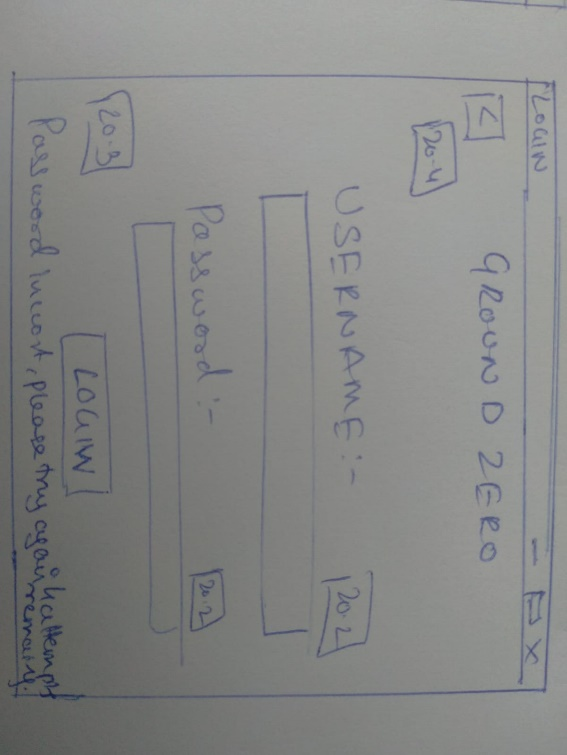 LOGIN – □ X
<
GROUND ZERO
20.4
USERNAME :-
20.2
Password :-
20.2
LOGIN
20.3
Password Incorrt, please try again 4 attempts
remaining.